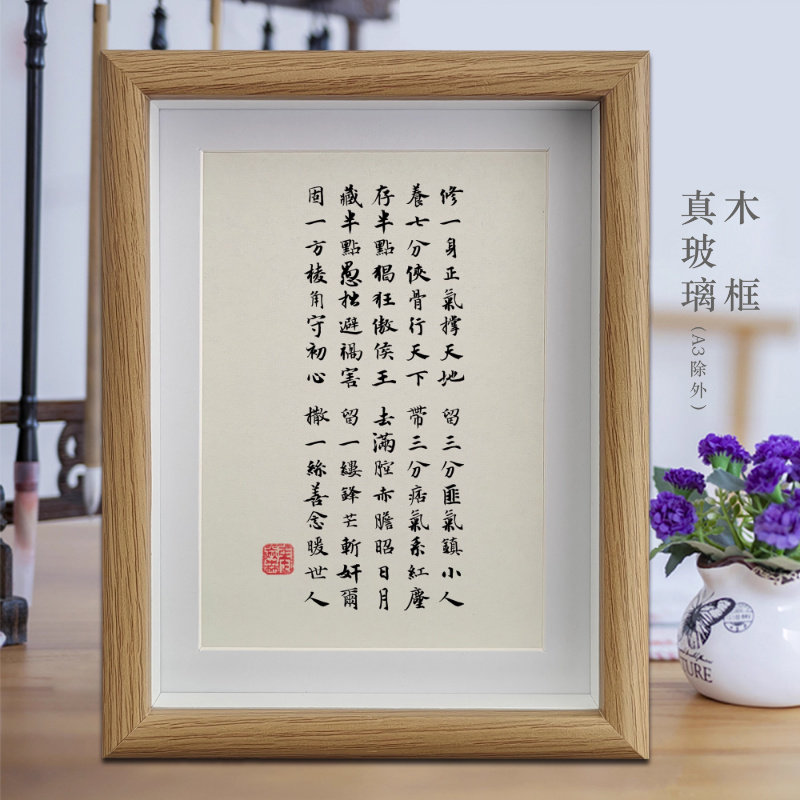 修一身正氣撐天地 留三分匪氣鎮小人
養七分俠骨行天下 帶三分痞氣系紅塵
存半點猖狂傲侯王 去滿腔赤膽昭日月
藏半點愚拙避禍害 留一縷鋒芒斬奸爾
固一方棱角守初心 撒一絲善念暖世人
木框
真玻璃(A3除外)
TURE